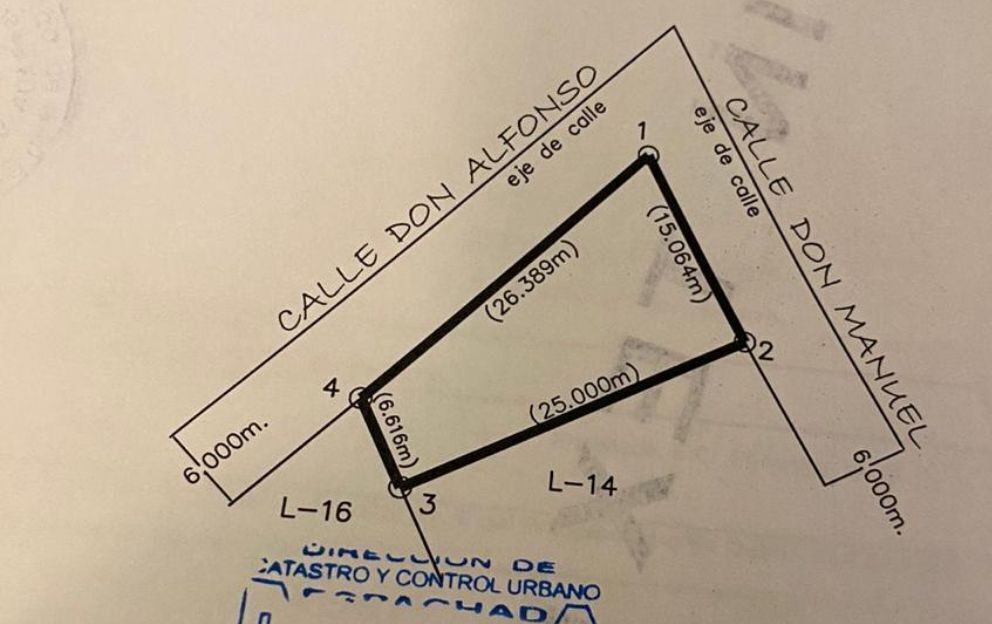 CALLE DON ALFONSO
eje de calle
CALLE DON MANUEL
eje de calle
1
(15.064m)
(26.389m)
2
4
(6.616m)
(25.000m)
6.000m.
6.000m.
L-16
3
L-14
DIRECCION DE
CATASTRO Y CONTROL URBANO